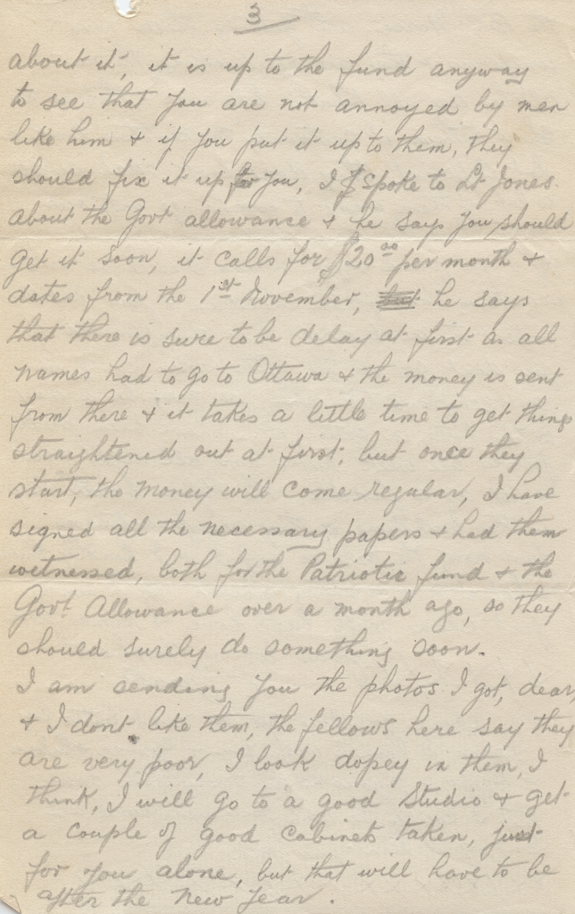 3
about it, it is up to the fund anyway
to see that you are not annoyed by men
like him & if you put it up to them, they
should fix it up for you, I spoke to Lt Jones.
about the Govt allowance & he says you should
get it soon, it calls for $20.00 per month &
dates from the 1st November, but he says
that there is sure to be delay at first as all
names had to go to Ottawa & the money is sent
from there & it takes a little time to get things
straightened out at first, but once they
start, the money will come regular, I have
signed all the necessary papers & had them
witnessed, both for the Patriotic fund & the
Govt Allowance over a month ago, so they
should surely do something soon.
I am sending you the photos I got, dear,
& I dont like them, the fellows here say they
are very poor, I look dopey in them, I
think, I will go to a good Studio & get
a couple of good Cabinets taken, just
for you alone, but that will have to be
after the New Year.